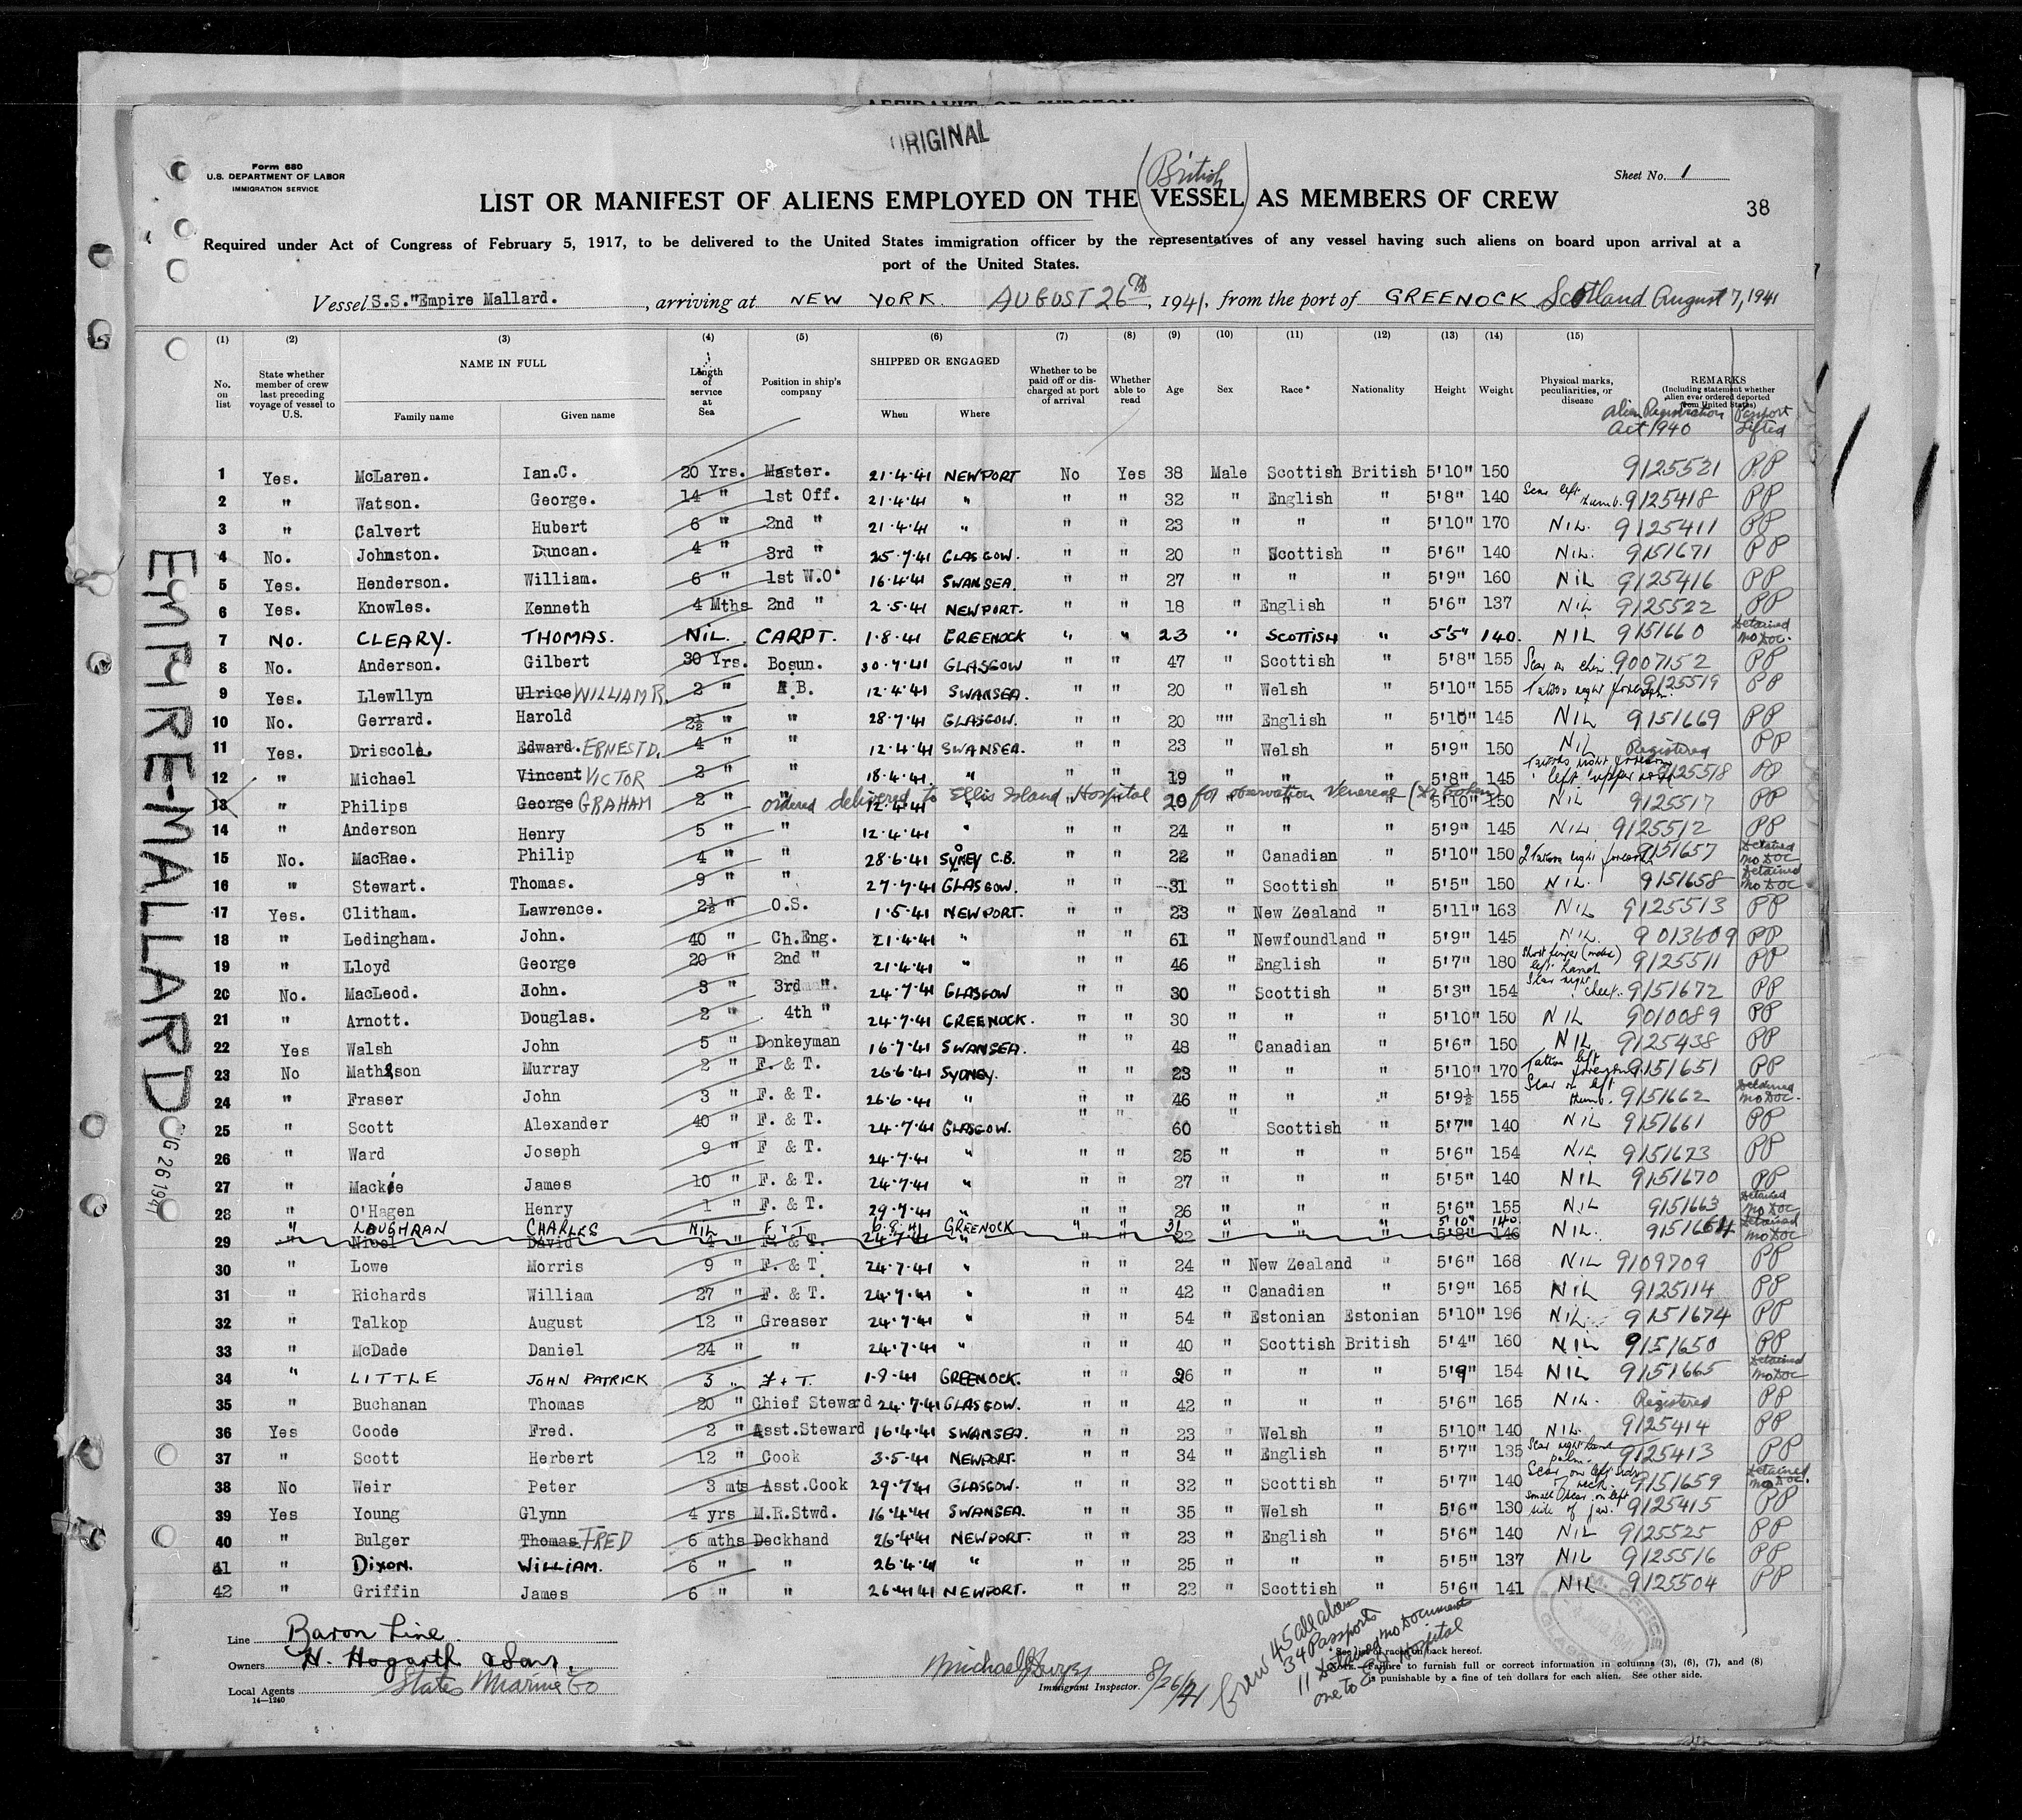 ORIGINAL
Form 680
U.S. DEPARTMENT OF LABOR
IMMIGRATION SERVICE
Sheet No. 1
(British)
LIST OR MANIFEST OF ALIENS EMPLOYED ON THE VESSEL AS MEMBERS OF CREW
38
Required under Act of Congress of February 5, 1917, to be delivered to the United States immigration officer by the representatives of any vessel having such aliens on board upon arrival at a
port of the United States.
Vessel S.S."Empire Mallard. , arriving at NEW YORK. AUGUST 26th, 1941, from the port of GREENOCK Scotland August 7, 1941
(1) (2) (3) (4) (5) (6) (7) (8) (9) (10) (11) (12) (13) (14) (15)
No. on list
State whether member of crew last preceding voyage of vessel to U.S.
NAME IN FULL
Family name
Given name
Length of service at Sea
Position in ship's company
SHIPPED OR ENGAGED
When
Where
Whether to be paid off or discharged at port of arrival
Whether able to read
Age
Sex
Race*
Nationality
Height
Weight
Physical marks, peculiarities, or disease
REMARKS
(Including statement whether alien ever ordered deported from United States)
Alien Registration Act 1940
Passport Lifted
1 Yes. McLaren. Ian.C. 20 Yrs. Master. 21.4.41 NEWPORT No Yes 38 Male Scottish British 5'10" 150 9125521 PP
2 " Watson. George. 14 " 1st Off. 21.4.41 " " " 32 " English " 5'8" 140 Scar left thumb. 9125418 PP
3 " Calvert Hubert 6 " 2nd " 21.4.41 " " " 23 " " " 5'10" 170 NIL. 9125411 PP
4 No. Johnston. Duncan. 4 " 3rd " 25.7.41 GLASGOW. " " 20 " Scottish " 5'6" 140 NIL. 9151671 PP
5 Yes. Henderson. William. 6 " 1st W.O. 16.4.41 SWANSEA. " " 27 " " " 5'9" 160 NIL 9125416 PP
6 Yes. Knowles. Kenneth 4 Mths 2nd " 2.5.41 NEWPORT. " " 18 " English " 5'6" 137 NIL 9125522 PP
7 No. CLEARY. THOMAS. NIL. CARPT. 1.8.41 GREENOCK " " 23 " SCOTTISH " 5'5" 140. NIL 9151660 Detained no Doc.
8 No. Anderson. Gilbert 30 Yrs. Bosun. 30.7.41 GLASGOW " " 47 " Scottish " 5'8" 155 Scar on chin 9007152 PP
9 Yes. Llewllyn Ulrice WILLIAM R. 2 " A.B. 12.4.41 SWANSEA. " " 20 " Welsh " 5'10" 155 Tattoo right forearm. 9125519 PP
10 No. Gerrard. Harold 2½ " " 28.7.41 GLASGOW. " " 20 "" English " 5'10" 145 NIL 9151669 PP
11 Yes. Driscoll. Edward. ERNEST D. 4 " " 12.4.41 SWANSEA. " " 23 " Welsh " 5'9" 150 NIL Registered PP
12 " Michael Vincent VICTOR 2 " " 18.4.41 " " " 19 " " " 5'8" 145 Tattoos right forearm " left upper 9125518 PP
13 " Philips George GRAHAM 2 " " 12.4.41 " " " 20 " " " 5'10" 150 NIL 9125517 PP
ordered delivered to Ellis Island Hospital for observation Venereal
14 " Anderson Henry 5 " " 12.4.41 " " " 24 " " " 5'9" 145 NIL 9125512 PP
15 No. MacRae. Philip 4 " " 28.6.41 SYDNEY C.B. " " 22 " Canadian " 5'10" 150 2 Tattoos right forearm 9151657 Detained no Doc
16 " Stewart. Thomas. 9 " " 27.7.41 GLASGOW. " " 31 " Scottish " 5'5" 150 NIL. 9151658 Detained no Doc
17 Yes. Clitham. Lawrence. 2½ " O.S. 1.5.41 NEWPORT. " " 23 " New Zealand " 5'11" 163 NIL 9125513 PP
18 " Ledingham. John. 40 " Ch.Eng. 21.4.41 " " " 61 " Newfoundland " 5'9" 145 NIL. 9013609 PP
19 " Lloyd George 20 " 2nd " 21.4.41 " " " 46 " English " 5'7" 180 Short finger left hand 9125511 PP
20 No. MacLeod. John. 3 " 3rd " 24.7.41 GLASGOW " " 30 " Scottish " 5'3" 154 Scar right cheek. 9151672 PP
21 " Arnott. Douglas. 2 " 4th " 24.7.41 GREENOCK. " " 30 " " " 5'10" 150 NIL 9010089 PP
22 Yes Walsh John 5 " Donkeyman 16.7.41 SWANSEA. " " 48 " Canadian " 5'6" 150 NIL 9125438 PP
23 No Mathison Murray 2 " F. & T. 26.6.41 SYDNEY. " " 23 " " " 5'10" 170 Tattoo left forearm. 9151651 PP
24 " Fraser John 3 " F. & T. 26.6.41 " " " 46 " " " 5'9½ 155 Scar on left thumb. 9151662 Detained no Doc.
25 " Scott Alexander 40 " F. & T. 24.7.41 GLASGOW. " " 60 " Scottish " 5'7" 140 NIL 9151661 PP
26 " Ward Joseph 9 " F & T. 24.7.41 " " " 25 " " " 5'6" 154 NIL 9151673 PP
27 " Mackie James 10 " F. & T. 24.7.41 " " " 27 " " " 5'5" 140 NIL 9151670 PP
28 " O'Hagen Henry 1 " F. & T. 29.7.41 " " " 26 " " " 5'6" 155 NIL 9151663 Detained no Doc
" LOUGHRAN CHARLES NIL F & T 6.8.41 GREENOCK " " 31 " " " 5'10" 140 NIL. 9151664 Detained no Doc
29 " Nicol David 4 " F. & T. 24.7.41 " " " 22 " " " 5'8" 146
30 " Lowe Morris 9 " F. & T. 24.7.41 " " " 24 " New Zealand " 5'6" 168 NIL 9109709 PP
31 " Richards William 27 " F. & T. 24.7.41 " " " 42 " Canadian " 5'9" 165 NIL 9125114 PP
32 " Talkop August 12 " Greaser 24.7.41 " " " 54 " Estonian Estonian 5'10" 196 NIL. 9151674 PP
33 " McDade Daniel 24 " " 24.7.41 " " " 40 " Scottish British 5'4" 160 NIL 9151650 PP
34 " LITTLE JOHN PATRICK 3 " F & T. 1.8.41 GREENOCK. " " 26 " " " 5'9" 154 NIL 9151665 Detained no Doc
35 " Buchanan Thomas 20 " Chief Steward 24.7.41 GLASGOW. " " 42 " " " 5'6" 165 NIL. Registered PP
36 Yes Coode Fred. 2 " Asst.Steward 16.4.41 SWANSEA. " " 23 " Welsh " 5'10" 140 NIL. 9125414 PP
37 " Scott Herbert 12 " Cook 3.5.41 NEWPORT. " " 34 " English " 5'7" 135 Scar right hand palm. 9125413 PP
38 No Weir Peter 3 mts Asst.Cook 29.7.41 GLASGOW. " " 32 " Scottish " 5'7" 140 Scar on left side of neck. 9151659 Detained no Doc.
39 Yes Young Glynn 4 yrs M.R.Stwd. 16.4.41 SWANSEA. " " 35 " Welsh " 5'6" 130 Small scar on left side of jaw. 9125415 PP
40 " Bulger Thomas FRED 6 mths Deckhand 26.4.41 NEWPORT. " " 23 " English " 5'6" 140 NIL 9125525 PP
41 " DIXON. WILLIAM. 6 " " 26.4.41 " " " 25 " " " 5'5" 137 NIL 9125516 PP
42 " Griffin James 6 " " 26.4.41 NEWPORT. " " 22 " Scottish " 5'6" 141 NIL 9125504 PP
EMPIRE-MALLARD
UG 26 194
Line Baron Line.
Owners H. Hogarth & Sons.
Local Agents States Marine Co
14—1240
Immigrant Inspector. 8/26/41
Crew 45 all aliens
34 Passports
11 Detained no Documents
one to E.I. Hospital
on back hereof.
Failure to furnish full or correct information in columns (3), (6), (7), and (8)
is punishable by a fine of ten dollars for each alien. See other side.